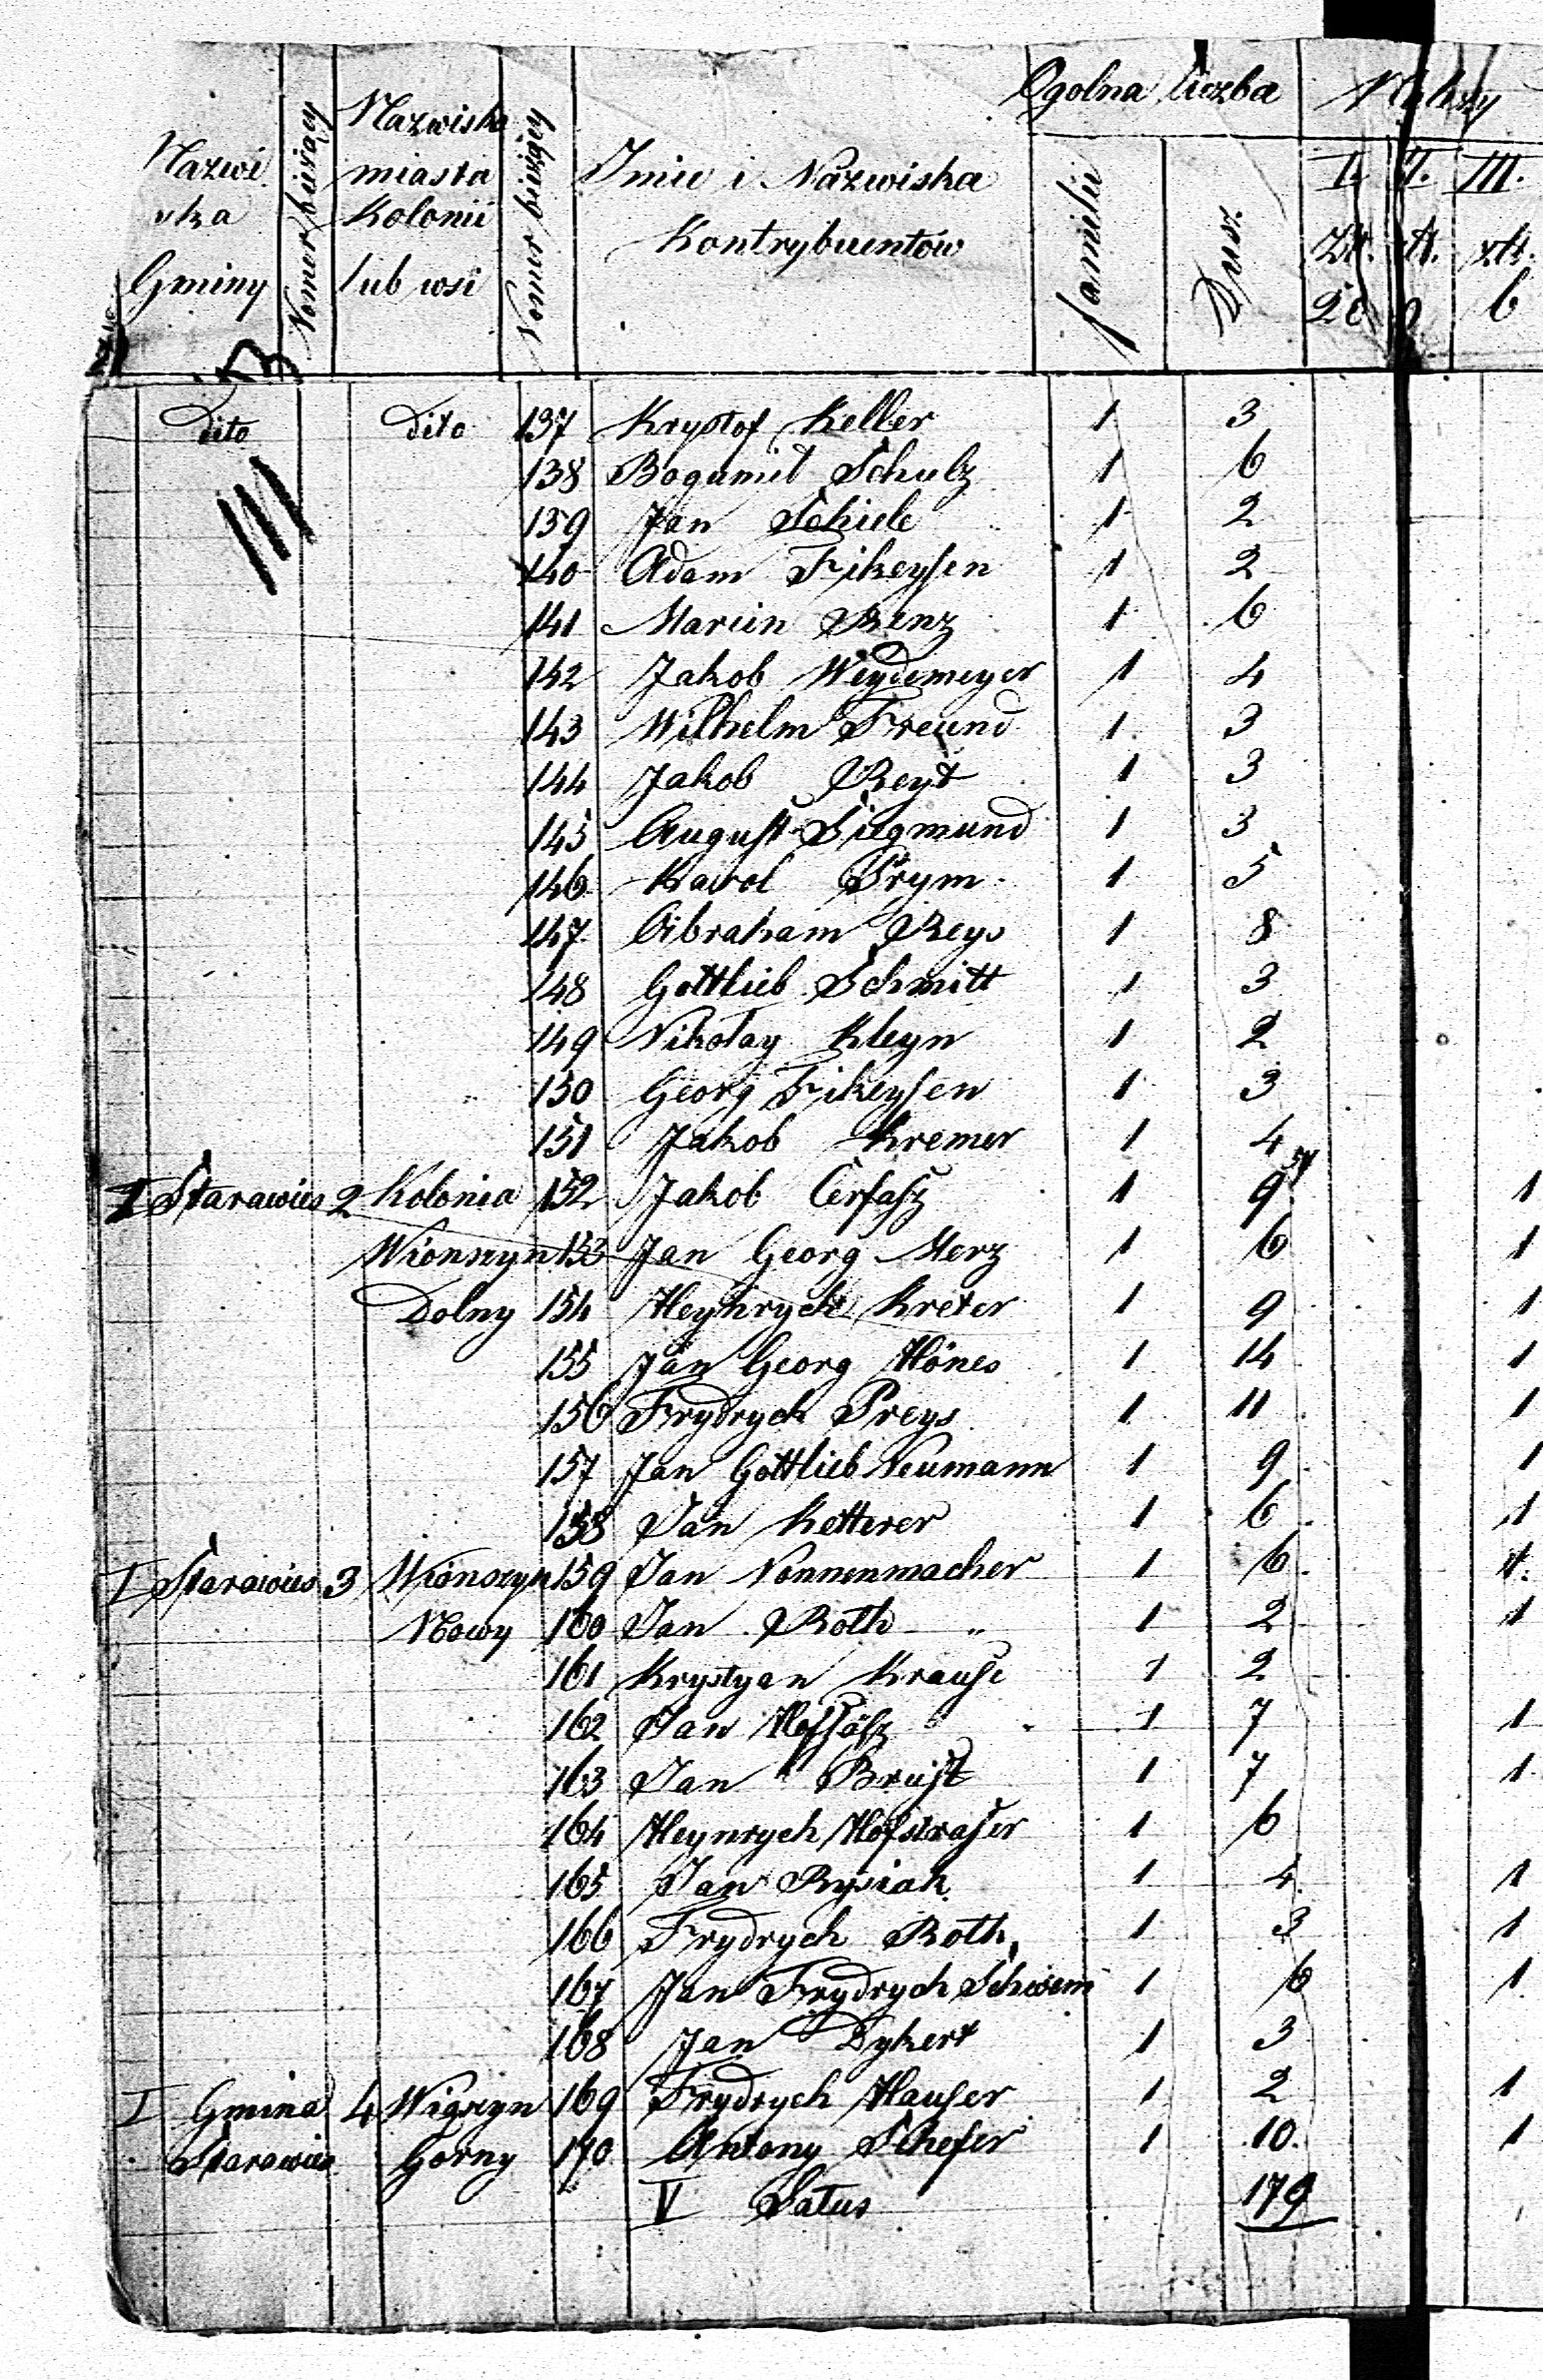 Nazwi
ska
Gminy
Nomer bieżący
Nazwiska
miasta
Kolonii
lub wsi
Nomer bieżący
Imie i Nazwiska
Kontrybuentów
Ogolna liczba
familii
Dusz.
I. II. III.
Zł. zł. złt.
6
dito dito 137 Krystof Keller 1 3
138 Bogumił Schulz 1 6
139 Jan Schiele 1 2
140 Adam Fikeysen 1 2
141 Marcin Renz 1 6
142 Jakob Weydemeyer 1 4
143 Wilhelm Freund 1 3
144 Jakob Reyt 1 3
145 August Siegmund 1 3
146 Karol Prym 1 5
147 Abraham Reys 1 8
148 Gottlieb Schmitt 1 3
149 Nikołay Kleyn 1 2
150 Georg Fikeysen 1 3
151 Jakob Kremer 1 4
I Starawies 2 Kolonia 152 Jakob Cerfasz 1 9 1
Wionszyn 153 Jan Georg Merz 1 6 1
Dolny 154 Heynrych Kreter 1 9 1
155 Jan Georg Hönes 1 14 1
156 Frydrych Preys 1 11 1
157 Jan Gottlieb Neumann 1 9 1
158 Jan Ketterer 1 6 1
I Starawies 3 Wionszyn 159 Jan Nonnenmacher 1 6 1
Nowy 160 Jan Roth 1 2 1
161 Krystyan Krause 1 2
162 Jan 1 7 1
163 Jan Brust 1 7 1
164 Heynrych Hofstraser 1 6
165 Jan Rysiak 1 4 1
166 Frydrych Roth 1 3 1
167 Jan Frydrych Schwem 1 6 1
168 Jan Dykert 1 3
I Gmina 4 Wiąszyn 169 Frydrych Hauser 1 2 1
Starawies Gorny 170 Antony Schefer 1 10 1
V Latus 179